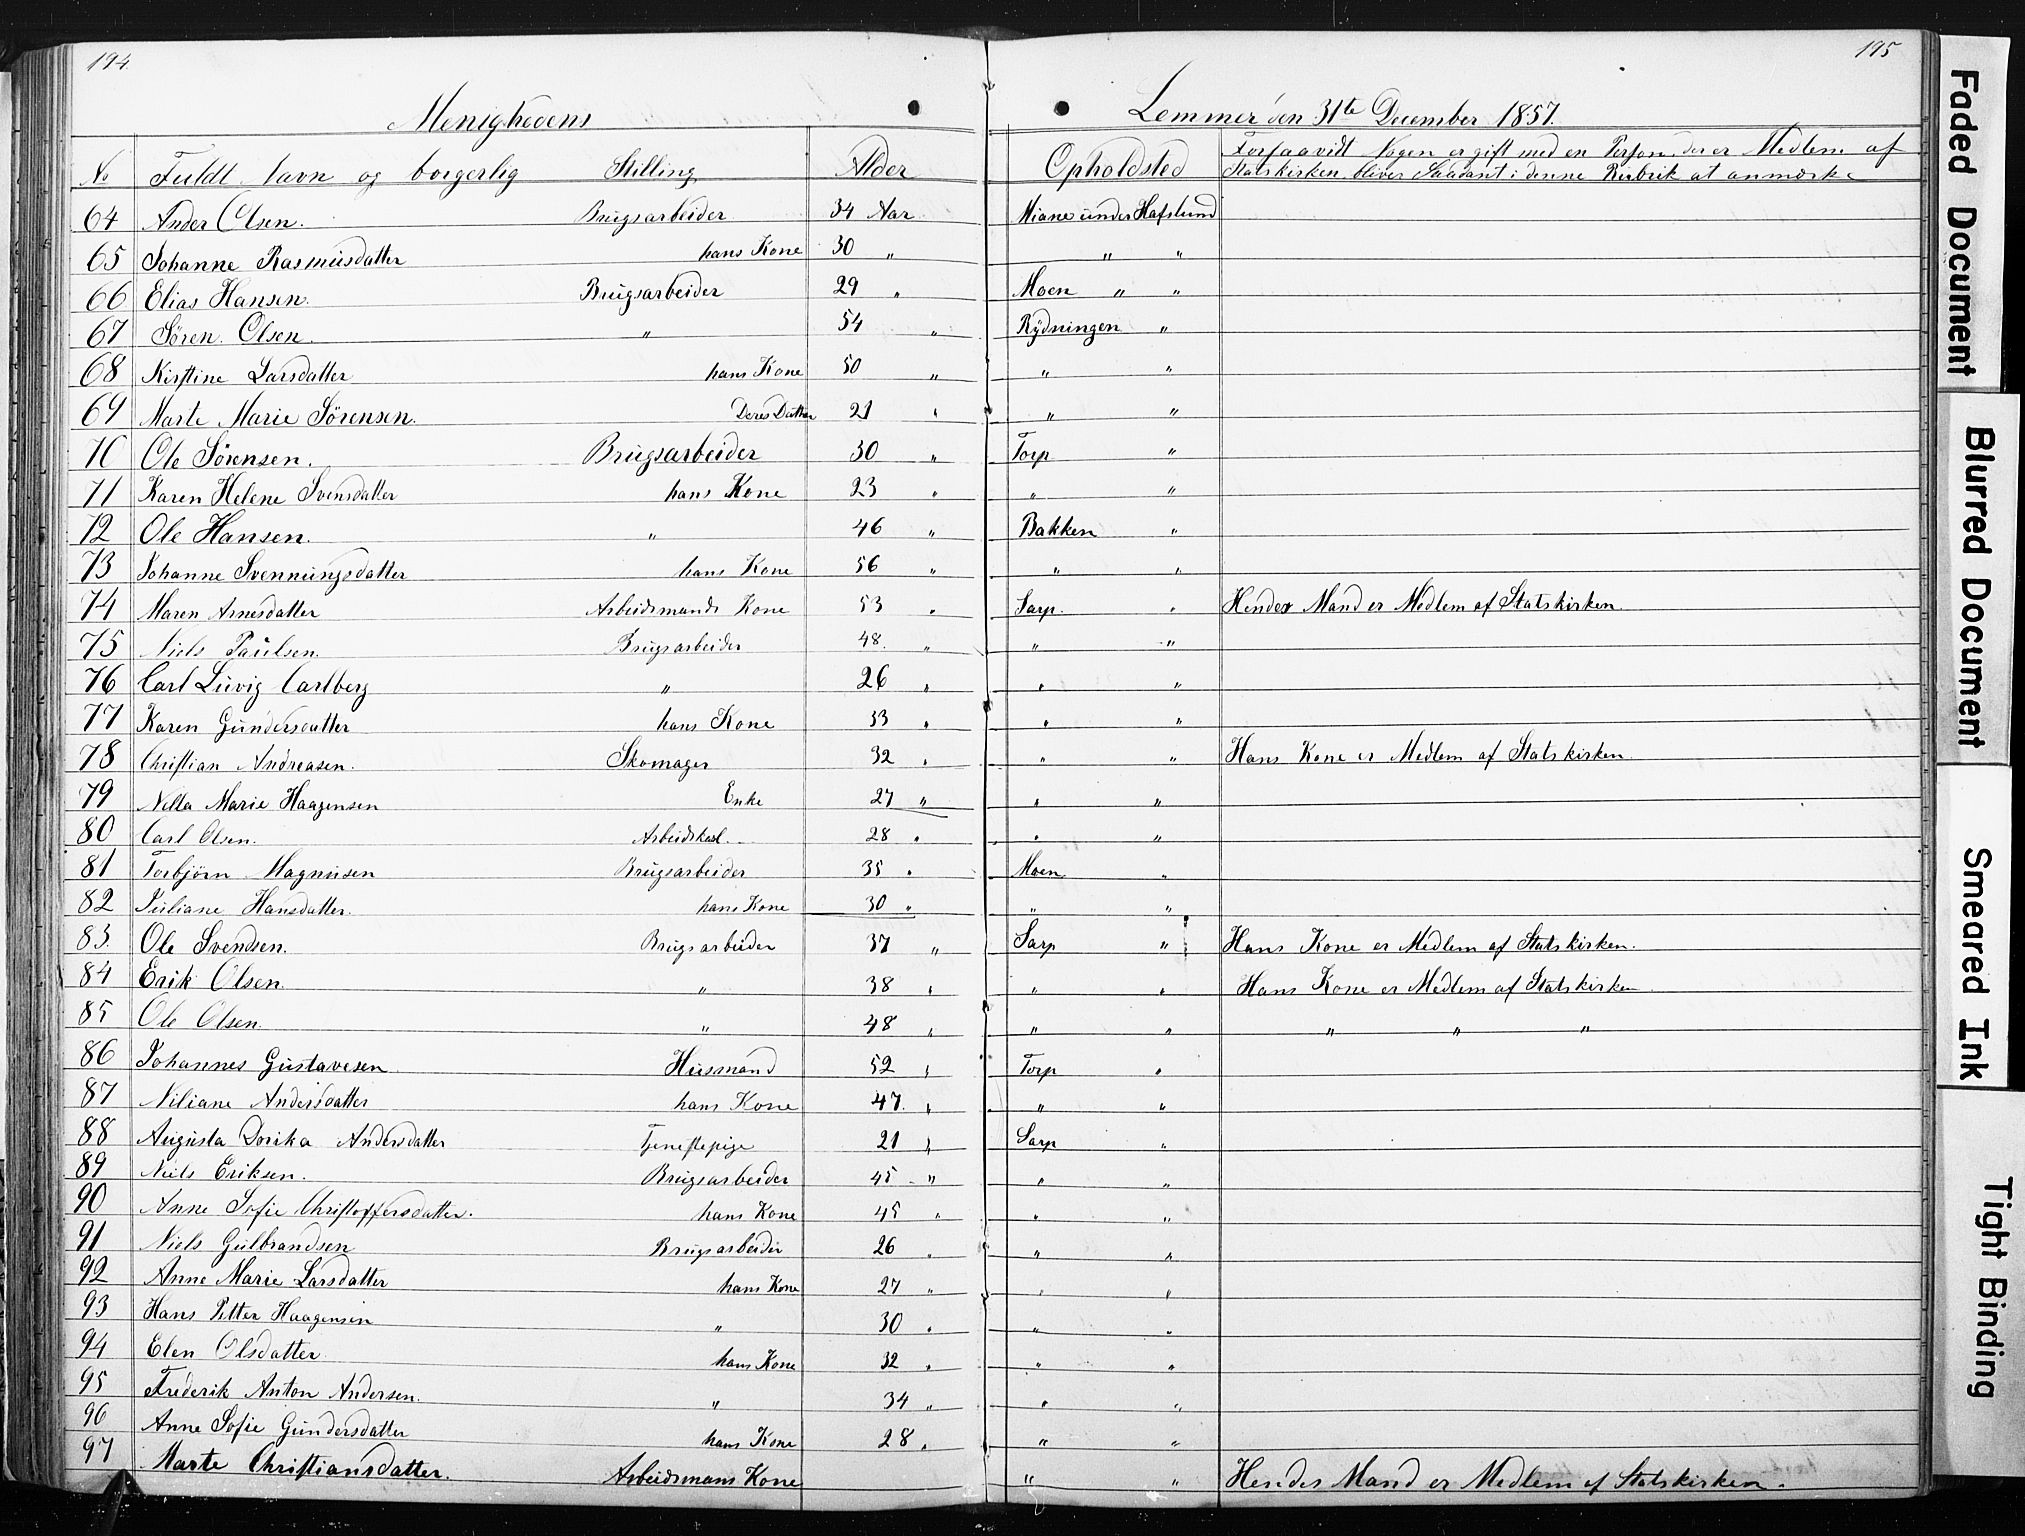 194.
195
Menighedens Lemmer den 31te December 1857.
No Fuldt Navn og borgerlig Stilling Alder Opholdsted Forsaavidt Nogen er gift med en Person, der er Medlem af
Statskirken, bliver Saadant i denne Rubrik at anmærke
64 Ander Olsen. Brugsarbeider 34 Aar Miane under Hafslund
65 Johanne Rasmusdatter hans Kone 30 " " "
66 Elias Hansen. Brugsarbeider 29 " Moen " "
67 Sören Olsen " 54 " Rydningen "
68 Kirstine Larsdatter hans Kone 50 " " "
69 Marte Marie Sörensen. Deres Datter 21 " " "
70 Ole Sörensen. Brugsarbeider 30 " Torp "
71 Karen Helene Svensdatter hans Kone 23 " " "
72 Ole Hansen. " 46 " Bakken "
73 Johanne Svenningsdatter hans Kone 56 " " "
74 Maren Arnesdatter Arbeidsmands Kone 53 " Sarp. " Hendes Mand er Medlem af Statskirken.
75 Niels Paulsen. Brugsarbeider 48. " " "
76 Carl Luvig Carlberg " 26 " " "
77 Karen Gundersdatter hans Kone 33 " " "
78 Christian Andreasen. Skomager 32 " " " Hans Kone er Medlem af Statskirken.
79 Nella Marie Haagensen Enke 27 " " "
80 Carl Olsen. Arbeidskarl. 28 " " "
81 Torbjörn Magnusen Brugsarbeider 35 " Moen "
82 Juliane Hansdatter. hans Kone 30 " " "
83. Ole Svendsen. Brugsarbeider 37 " Sarp " Hans Kone er Medlem af Statskirken.
84 Erik Olsen. " 38 " " " Hans Kone er Medlem af Statskirken
85 Ole Olsen. " 48 " " " " " "
86 Johannes Gustavesen Husmand 52 " Torp "
87 Niliane Andersdatter hans Kone 47. " " "
88 Augusta Dorika Andersdatter Tjenestepige 21 " Sarp "
89 Niels Eriksen. Brugsarbeider 45 " " "
90 Anne Sofie Christoffersdatter. hans Kone 45 " " "
91 Niels Gulbrandsen Brugsarbeider 26 " " "
92 Anne Marie Larsdatter hans Kone 27 " " "
93 Hans Petter Haagensen " 30 " " "
94 Elen Olsdatter. hans Kone 32 " " "
95 Frederik Anton Andersen. " 34 " " "
96 Anne Sofie Gundersdatter hans Kone 28 " " "
97 Marte Christiansdatter. Arbeidsmans Kone " " Hendes Mand er Medlem af Statskirken.
Faded Document
Blurred Document
Smeared Ink
Tight Binding